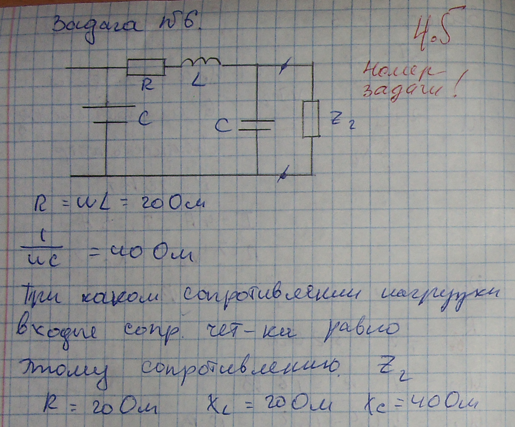 Задача №6.
4.5
Номер
задачи!
R
L
C
C
Z₂
R = ωL = 20 Ом
1/ωC = 40 Ом
При каком сопротивлении нагрузки
входное сопр. чет-ка равно
этому сопротивлению Z₂
R = 20 Ом X_L = 20 Ом X_C = 40 Ом